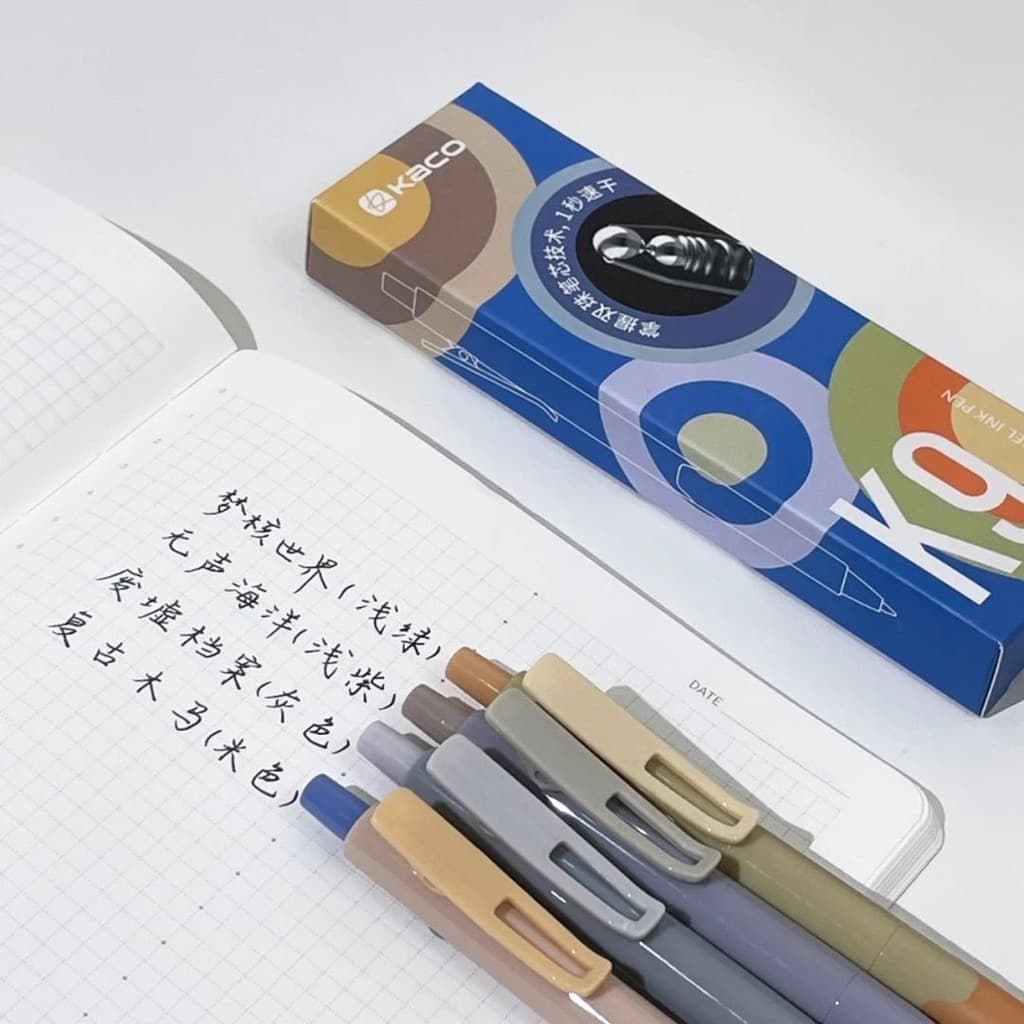 kaco
掌握双珠笔芯技术,1秒速干
EL INK PEN
K9
梦核世界(浅绿)
无声海洋(浅紫)
废墟档案(灰色)
复古木马(米色)
DATE